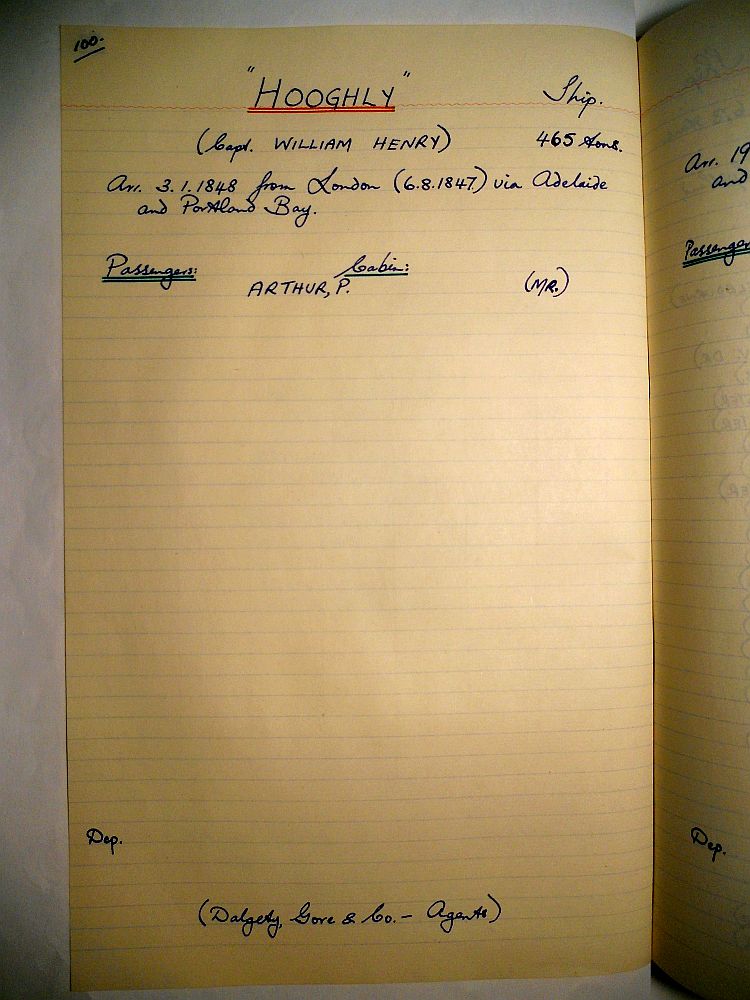 100.
"HOOGHLY" Ship.
(Capt. WILLIAM HENRY) 465 tons.
Arr. 3.1.1848 from London (6.8.1847) via Adelaide
and Portland Bay.
Passengers: Cabin:
ARTHUR, P. (MR.)
Dep.
(Dalgety, Gore & Co. - Agents)
Arr. 19
and
Passenger
Dep.